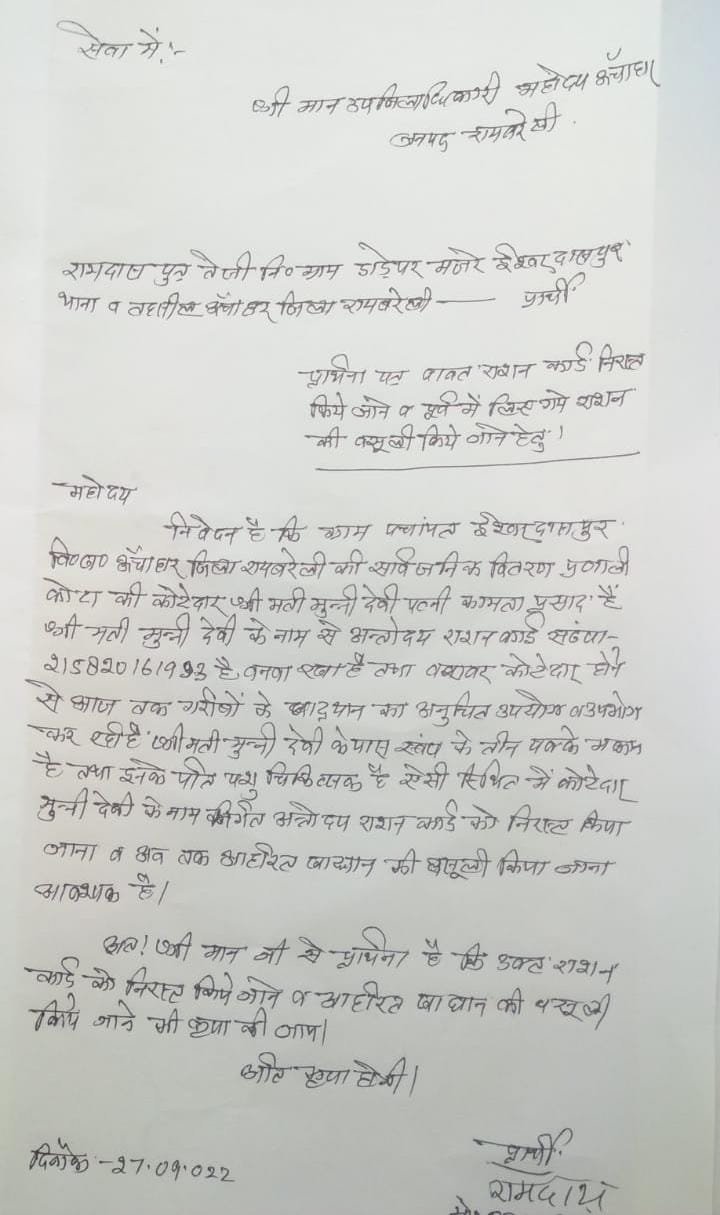 सेवा में:-
श्री मान उपजिलाधिकारी महोदय ऊँचाहार
जनपद रायबरेली.
रामदास पुत्र तेजी नि० ग्राम डाड़ेपर मजरे ईश्वरदासपुर
थाना व तहसील ऊँचाहर जिला रायबरेली —— प्रार्थी
प्रार्थना पत्र वावत राशन कार्ड निरस्त
किये जाने व पूर्व में लिए गये राशन
की वसूली किये जाने हेतु।
महोदय
निवेदन है कि ग्राम पंचायत ईश्वरदासपुर
वि०ख० ऊँचाहार जिला रायबरेली की सार्वजनिक वितरण प्रणाली
कोटा की कोटेदार श्री मती मुन्नी देवी पत्नी कामता प्रसाद हैं
श्री मती मुन्नी देवी के नाम से अन्तोदय राशन कार्ड संख्या-
है, बनवा रखा है तथा बराबर कोटेदार होने
से आज तक गरीबों के खाद्यान का अनुचित उपयोग व उपभोग
कर रही है श्रीमती मुन्नी देवी के पास स्वंय के तीन पक्के मकान
है तथा इनके पति पशु चिकित्सक है ऐसी स्थित में कोटेदार
मुन्नी देवी के नाम निर्गत अन्तोदय राशन कार्ड को निरस्त किया
जाना व अब तक आहरित खाद्यान की वसूली किया जाना
आवश्यक है।
अतः श्री मान जी से प्रार्थना है कि उक्त राशन
कार्ड को निरस्त किये जाने व आहरित खाद्यान की वसूली
किये जाने की कृपा की जाय।
अति कृपा होगी।
दिनाँक - 27.09.022
प्रार्थी
रामदास